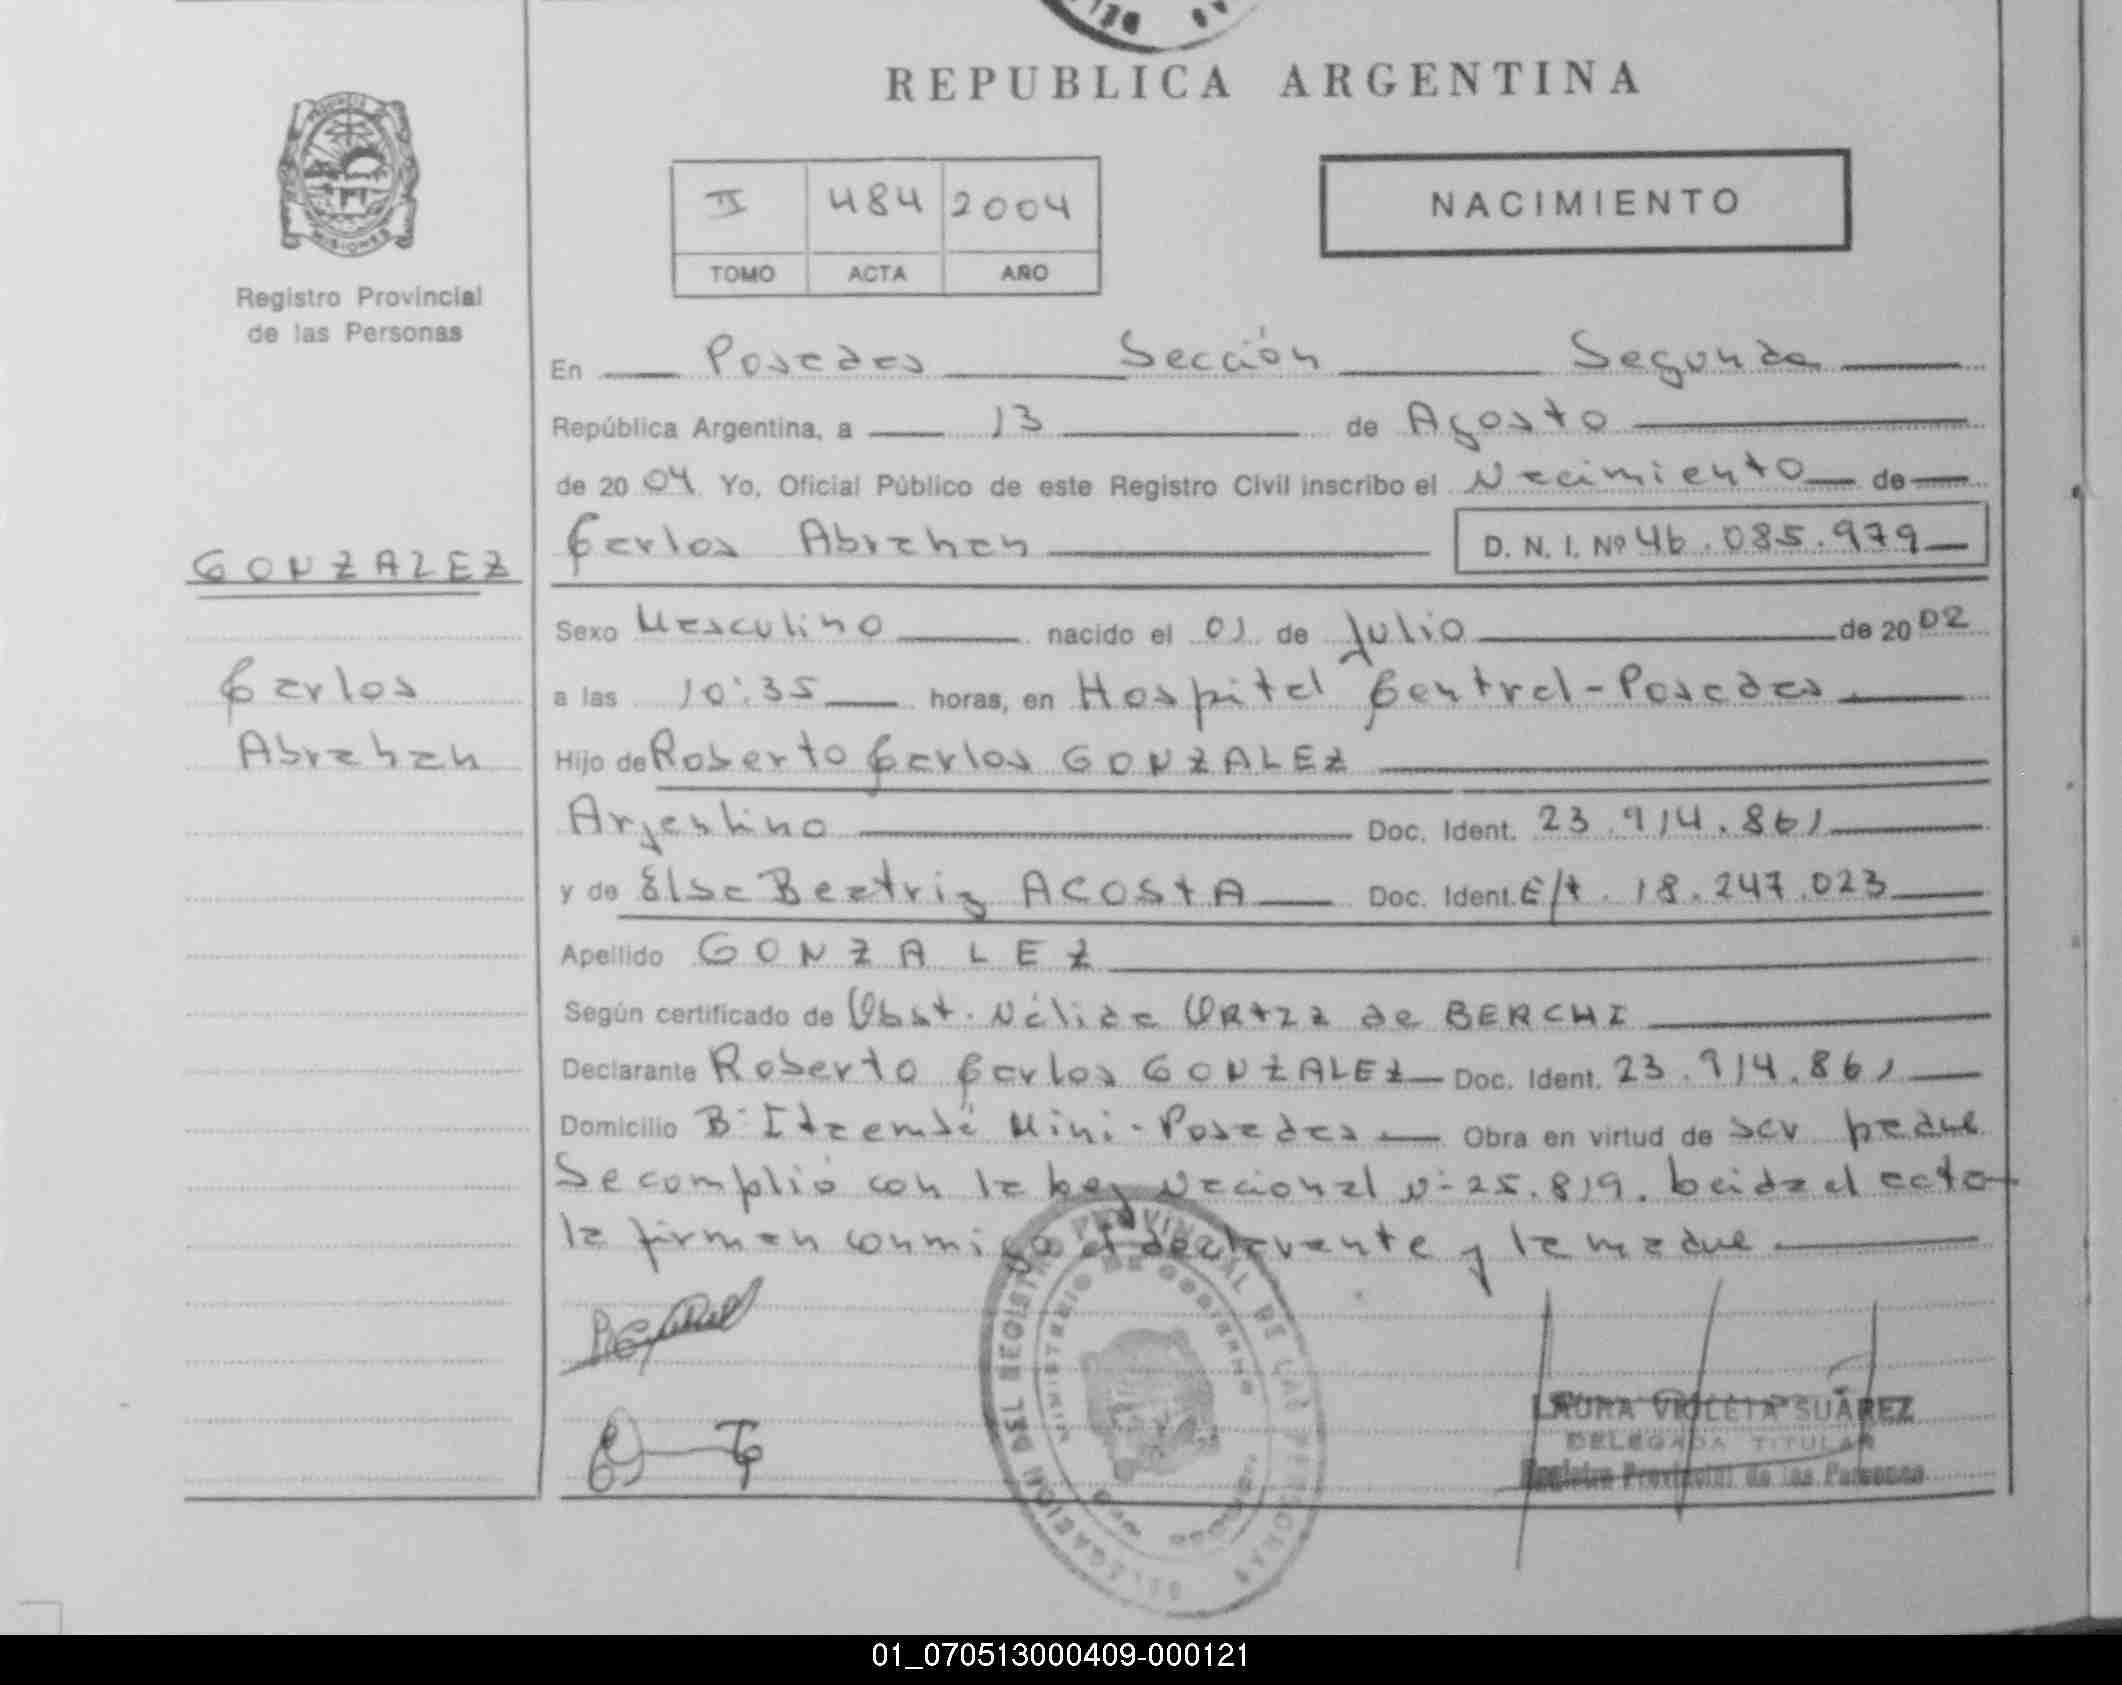 REPUBLICA ARGENTINA
MISIONES
Registro Provincial
de las Personas
II 484 2004
TOMO ACTA AÑO
NACIMIENTO
En Posadas Sección Segunda
República Argentina, a 13 de Agosto
de 2004 Yo, Oficial Público de este Registro Civil inscribo el Nacimiento de
GONZALEZ
Carlos Abrahan
Carlos Abrahan D. N. I. Nº 46.085.979
Sexo Masculino nacido el 01 de Julio de 2002
a las 10:35 horas, en Hospital Central - Posadas.
Hijo de Roberto Carlos GONZALEZ
Argentino Doc. Ident. 23.914.861
y de Elsa Beatriz ACOSTA Doc. Ident. E/t. 18.247.023
Apellido GONZALEZ
Según certificado de Obst. Nélida de BERCHI
Declarante Roberto Carlos GONZALEZ Doc. Ident. 23.914.861
Domicilio Bº Itaembé Mini - Posadas Obra en virtud de ser padre
Se complió con la Ley Nacional Nº 25.819. Leida el acta
la firman conmigo el declarante y la madre
DELEGACION DEL REGISTRO PROVINCIAL DE LAS PERSONAS
MINISTERIO DE GOBIERNO
LAURA VIOLETA SUÁREZ
DELEGADA TITULAR
Registro Provincial de las Personas
01_070513000409-000121